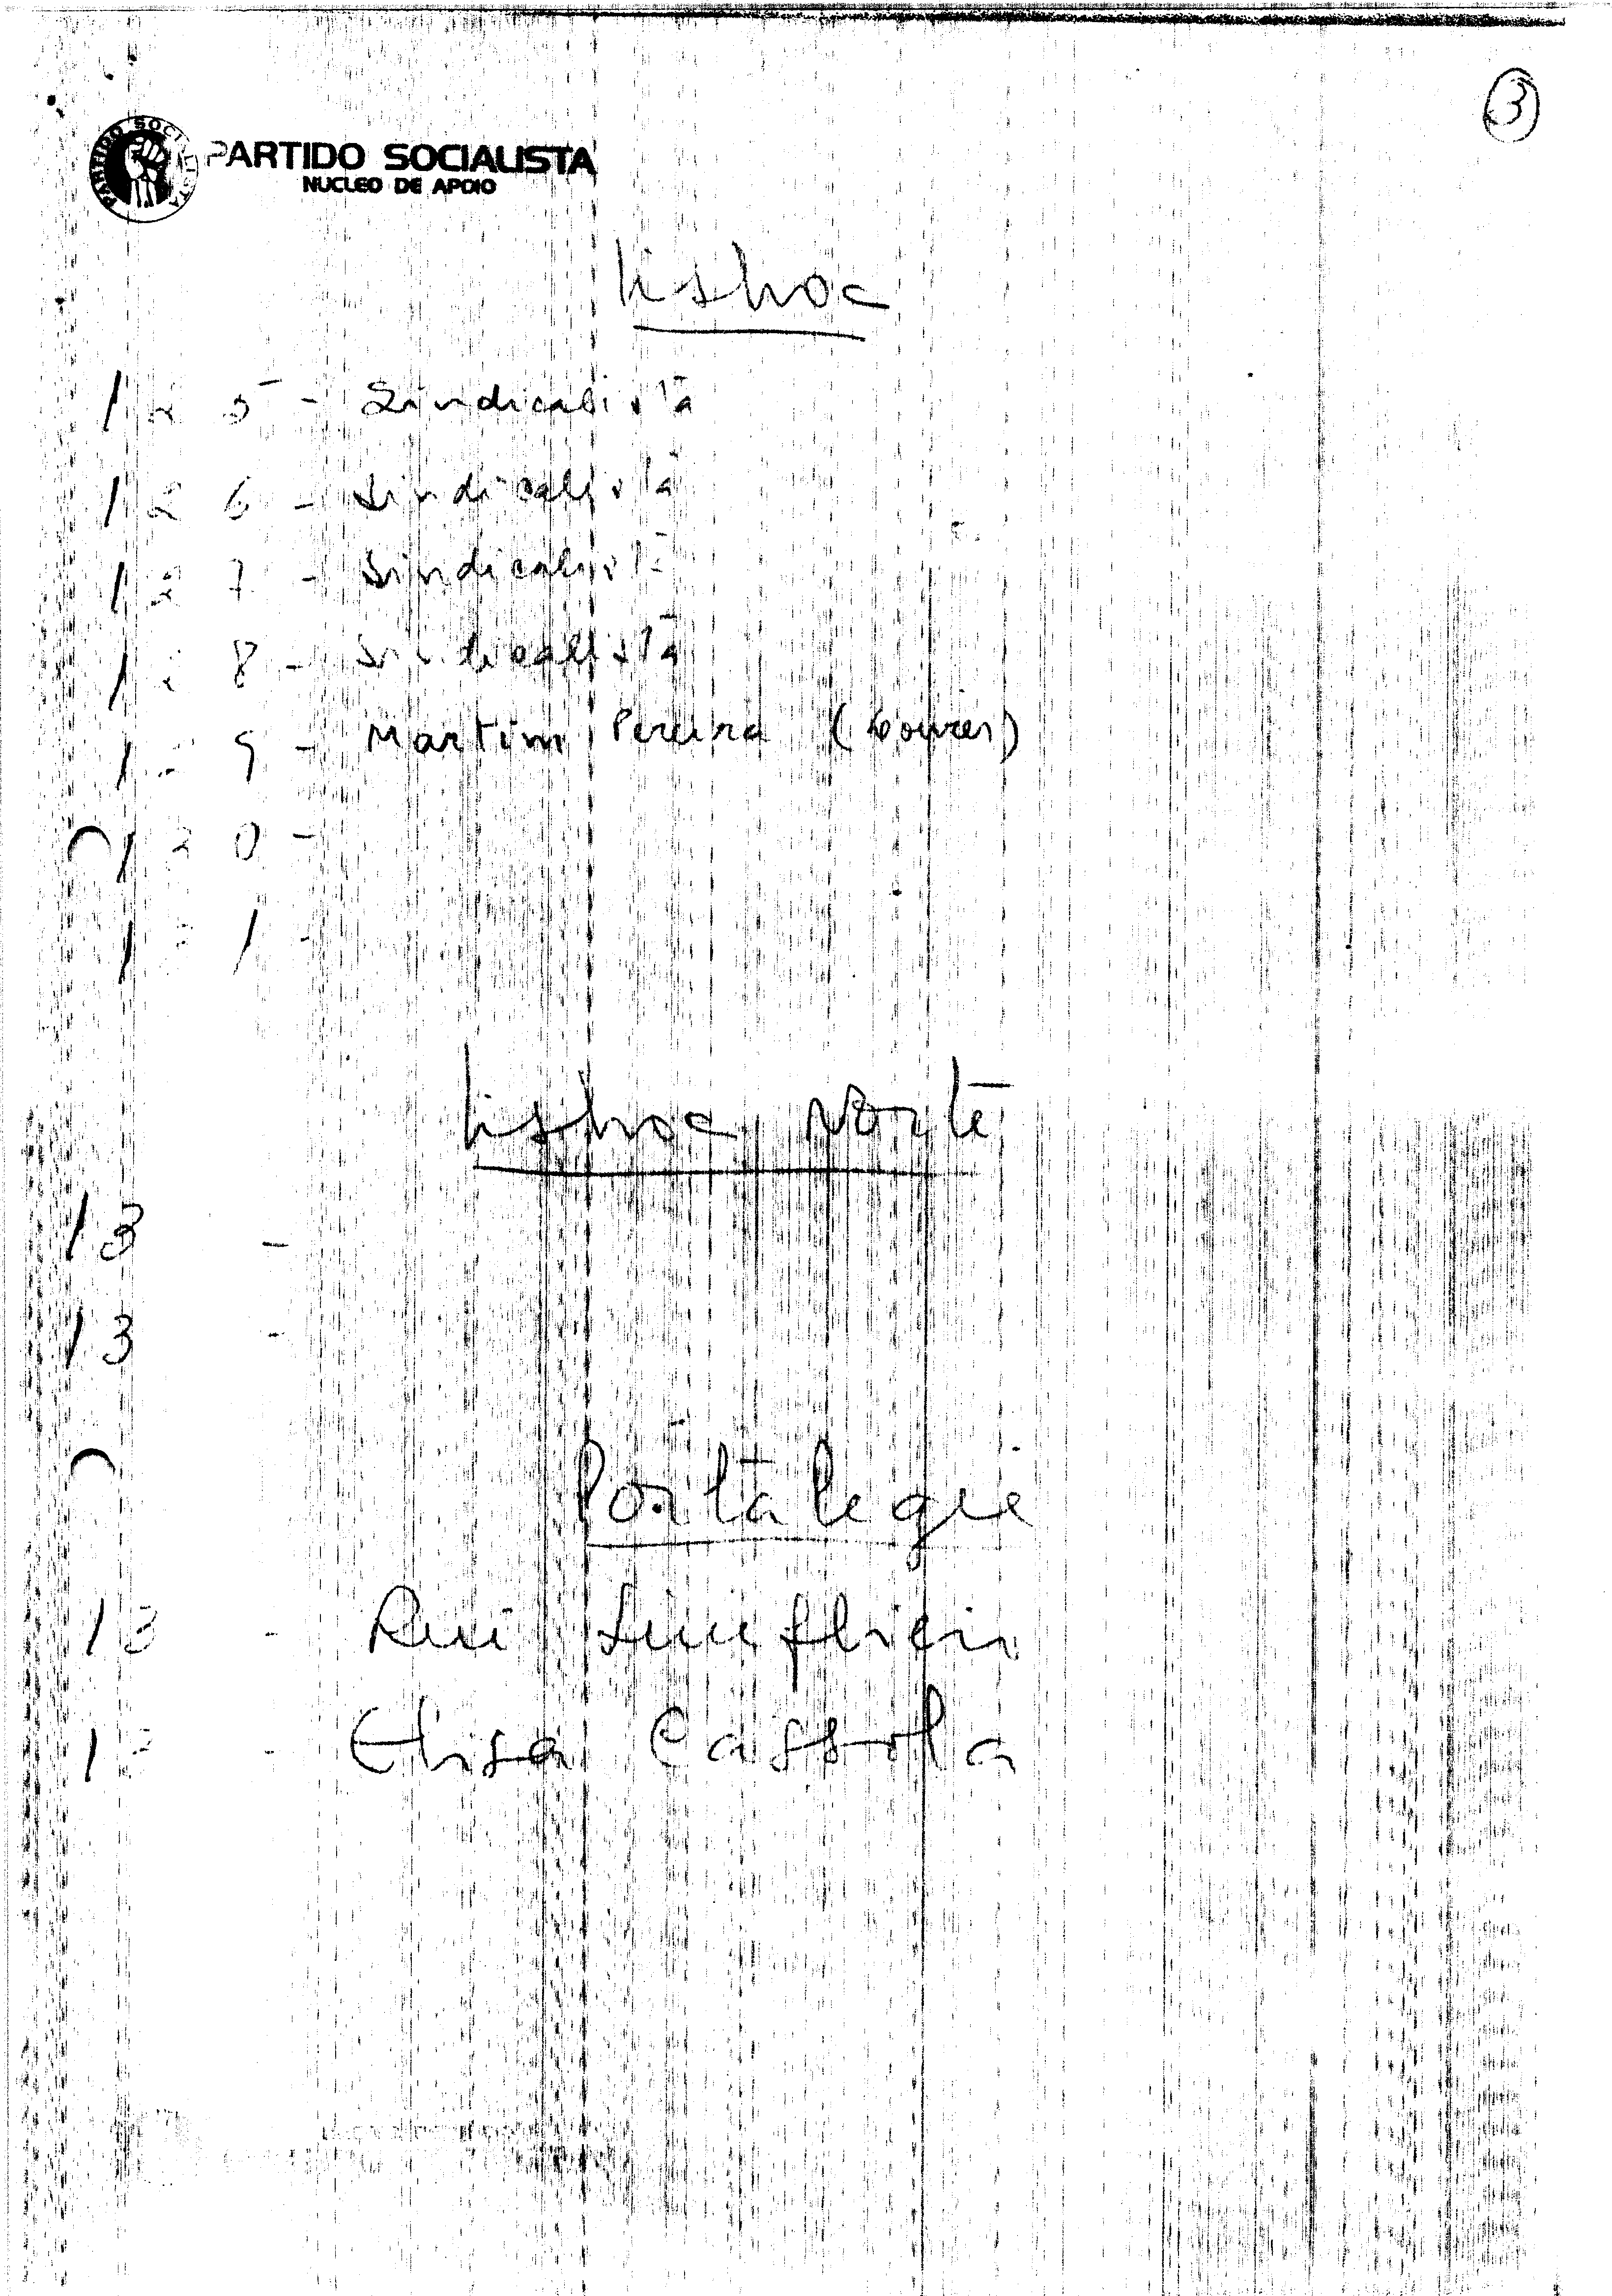 3
PARTIDO SOCIALISTA
PARTIDO SOCIALISTA
NUCLEO DE APOIO
Lisboa
125 - Sindicalista
126 - Sindicalista
127 - Sindicalista
128 - Sindicalista
129 - Martim Pereira (Loures)
0 -
1 -
Lisboa Norte
13 -
13 -
Portalegre
13 - Rui
- Elisa